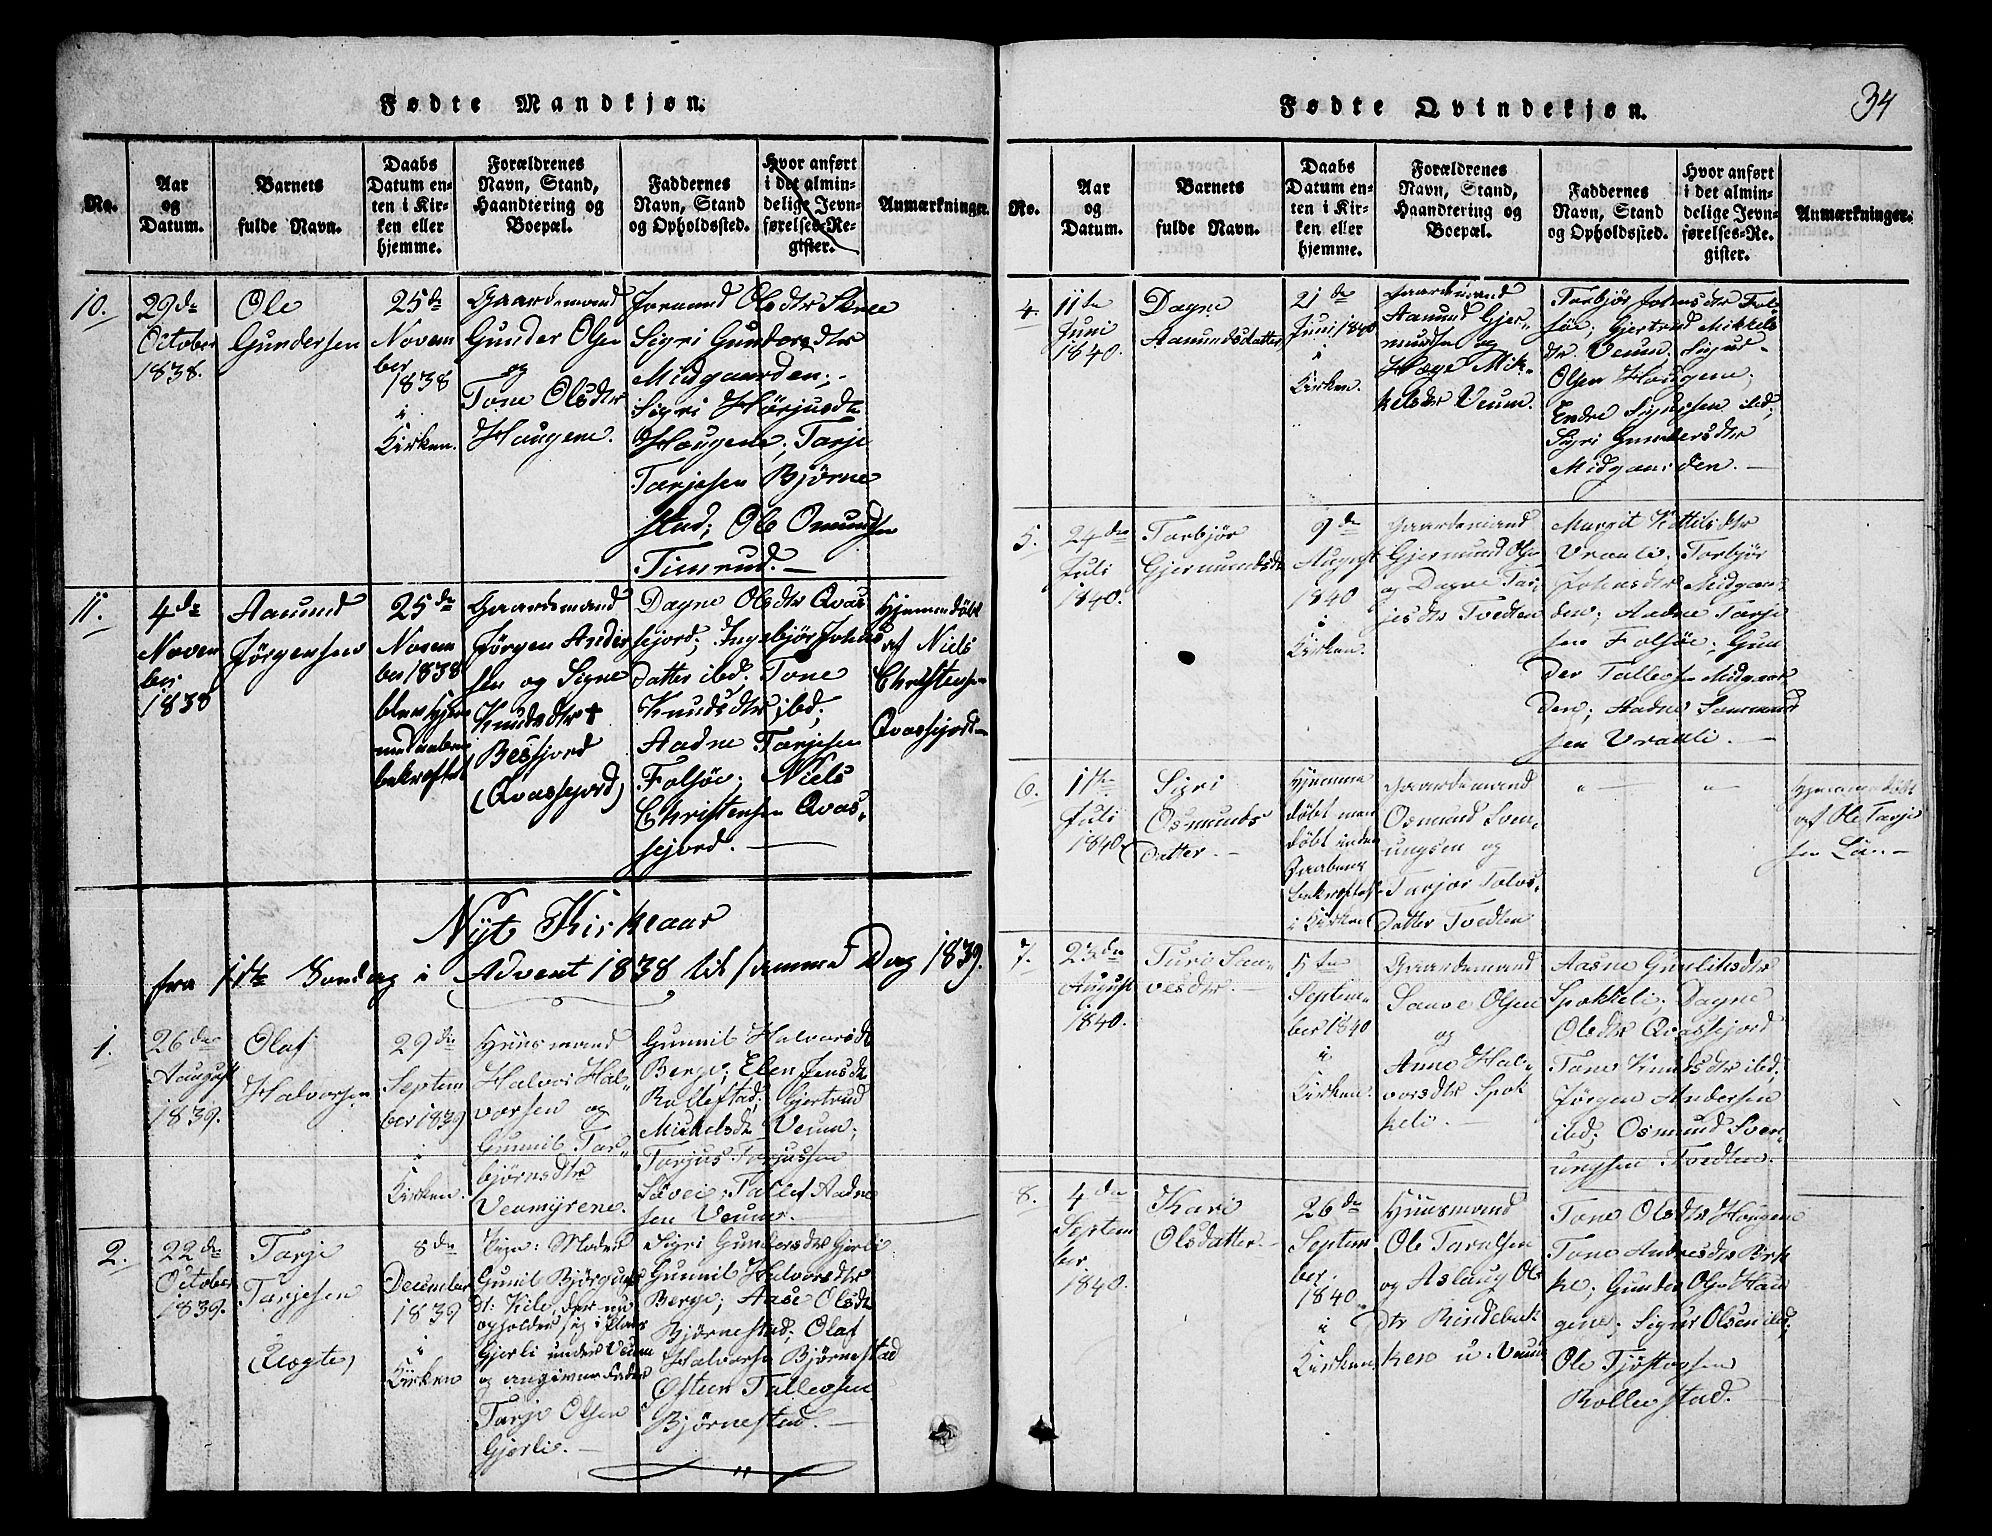 Fødte Mandkjøn.
No.
Aar
og
Datum.
Barnets
fulde Navn.
Daabs
Datum en-
ten i Kir-
ken eller
hjemme.
Forældrenes
Navn, Stand,
Haandtering og
Boepæl.
Faddernes
Navn, Stand
og Opholdssted.
Hvor anført
i det almin-
delige Jevn-
førelses-Re-
gister.
Anmærkninger.
10.
29de
October
1838.
Ole
Gundersen
25de
Novem
ber
1838
i
Kirken.
Gaardemand
Gunder Olsen
og
Tone Olsdtr
Haugene.
Joraand Olsdtr
Sigri Gundersdtr
Midgaarden;
Sigri Hörjusdtr
Haugene; Tarje
Tarjesen Björne
stad; Ole Omundsen
Timrud.
11.
4de
Novem
ber
1838
Aamund
Jörgensen
25de
Novem
ber 1838
blev Hjem
medaaben
bekræftet
Gaardemand
Jörgen Ander
sen og Signe
Knudsdtr
Besfjord
(Qvasfjord)
Dagne Olsdtr Qvas
fjord; Ingebjör Johns
datter ibd; Tone
Knudsdtr ibd;
Aadne Tarjesen
Folsöe; Niels
Christensen Qvas-
fjord.
Hjemmedöbt
af Niels
Christensen
Qvassfjord
Nyt Kirkeaar
fra 1ste Söndag i Advent 1838 til samme Dag 1839.
1.
26de
August
1839.
Olaf
Halvorsen
29de
Septem
ber 1839
i
Kirken.
Huusmand
Halvor Hal-
vorsen og
Gunnil Tor-
björnsdtr
Veumyrene.
Gunnil Halvorsdt
Berge; Elen Jensdt
Rollefstad; Gjertrud
Mickelsdt Veum;
Torjus Torjussen
Lövei; Tallef Aadne
sen Veum.
2.
22de
October
1839.
Tarje
Tarjesen
(Uægte)
8de
December
1839
i
Kirken
Pige: Moder
Gunil Björgulfs
dt: Kile, der nu
opholder sig i Plads
Gjerli under Veum
og angiver Fader
Tarje Olsen
Gjerli.
Sigri Gundersdtr Gjerli
Gunnil Halvorsdtr
Berge; Aase Olsdt
Björnestad; Olaf
Halvorsen Björnestad
Östen Tallevsen
Björnestad.
Fødte Qvindekjøn.
34
No.
Aar
og
Datum.
Barnets
fulde Navn.
Daabs
Datum en-
ten i Kir-
ken eller
hjemme.
Forældrenes
Navn, Stand,
Haandtering og
Boepæl.
Faddernes
Navn, Stand
og Opholdssted.
Hvor anført
i det almin-
delige Jevn-
førelses-Re-
gister.
Anmærkninger.
4.
11te
Juni
1840.
Dagne
Aamundsdatter
21de
Juni 1840
i
Kirken.
Gaardemand
Aamund Gjer-
mundsen og
Hæge Mik-
kelsdtr Veum.
Torbjör Johnsdtr Fol
söe; Gjertrud Mikkels
dtr. Veum. Sigud
Olsen Haugene;
Endre Sigudsen ibd;
Sigri Gundersdtr
Midgaarden.
5.
24de
Juli
1840.
Torbjör
Gjermundsdtr
9de
August
1840
i
Kirken.
Gaardemand
Gjermund Olsen
og Dagne Tar-
jesdtr Tvedten
Margit Kittilsdtr
Vraali; Torbjör
Johnsdtr Midgaar
den; Aadne Tarje
sen Folsöe; Gun
der Tallefsen Midgaar
den; Aadne Aamund
sen Vraali.
6.
11te
Juli
1840.
Sigri
Osmunds
Datter.
Hjemme
döbt men
döbt inden
Daabens
bekræftelse
i Kirken
Gaardemand
Osmund Sven-
ungsen og
Torjör Tolvs-
datter Tvedten
" — " —
Hjemmedöbt
af Ole Tarje
sen Lön
7.
23de
August
1840.
Turi Saa-
vesdtr.
5te
Septem-
ber 1840
i
Kirken.
Gaardemand
Saave Olsen
og
Anne Hal-
vorsdtr Spok
keli.
Aasne Gunleiksdtr
Spokkeli; Dagne
Olsdtr Qvasfjord
Tone Knudsdtr ibd;
Jörgen Andersen
ibd; Osmund Sven-
ungsen Tvedten.
8.
4de
Septem
ber
1840.
Kari
Olsdatter.
26de
Septem
ber.
1840.
i
Kirken.
Huusmand
Ole Taralsen
og Aslaug Ols
dtr Rindebak
ken u. Veum
Tone Olsdtr Haugene
Tone Andresdtr Berk
ke; Gunder Olsen Hau
gene; Sigur Olsen ibd;
Ole Tjöstolfsen
Rollefstad.